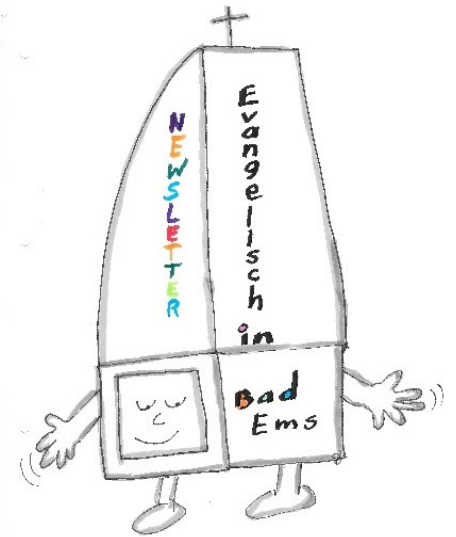 NEWSLETTER
Evangelisch
in
Bad
Ems